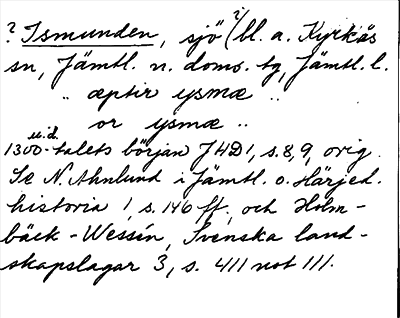 ? Ismunden, sjö ?/bl. a. Kyrkås
sn, Jämtl. n. doms. tg, Jämtl. l.
" æptir ysmæ "
or ysmæ "
u.d.
1300-talets början JHD1, s. 8, 9, orig.
Se N. Ahnlund i Jämtl. o. Härjed.
historia 1, s. 146 ff., och Holm-
bäck - Wessén, Svenska land-
skapslagar 3, s. 411 not 111.